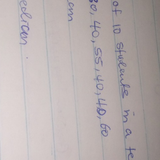 of 10 students in a te
40, 55, 40, 40, 60
em
edian.